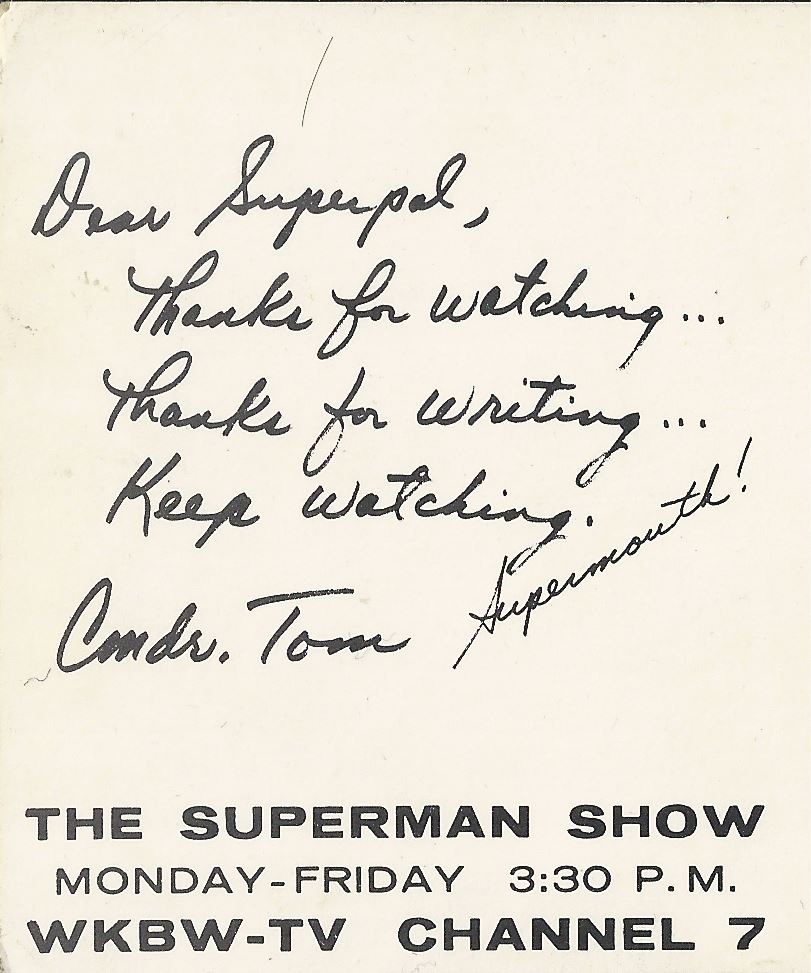 Dear Superpal,
Thanks for watching...
Thanks for writing...
Keep watching.
Supermouth!
Cmdr. Tom
THE SUPERMAN SHOW
MONDAY-FRIDAY 3:30 P.M.
WKBW-TV CHANNEL 7